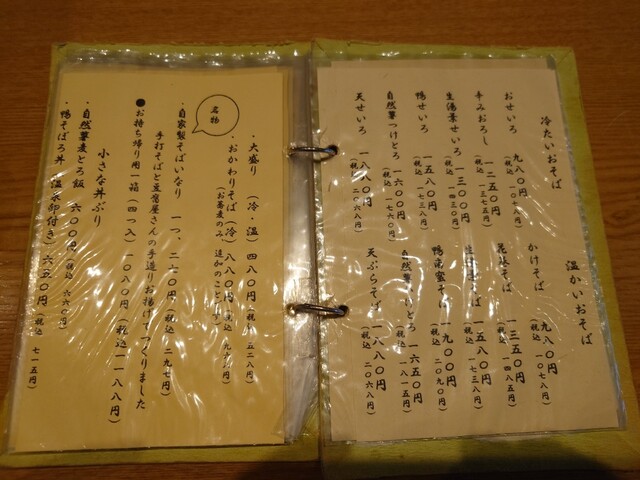 冷たいおそば
おせいろ 九八〇円（税込 一〇七八円）
辛みおろし 一二五〇円（税込 一三七五円）
生湯葉せいろ 一三〇〇円（税込 一四三〇円）
鴨せいろ 一五八〇円（税込 一七三八円）
自然薯つけとろ 一六〇〇円（税込 一七六〇円）
天せいろ 一八八〇円（税込 二〇六八円）
温かいおそば
かけそば 九八〇円（税込 一〇七八円）
そば 一三五〇円（税込 一四八五円）
そば 一五八〇円（税込 一七三八円）
そば 一九〇〇円（税込 二〇九〇円）
自然薯 とろ 一六五〇円（税込 一八一五円）
天ぷらそば 一八八〇円（税込 二〇六八円）
・大盛り（冷・温）四八〇円（税込 五二八円）
・おかわりそば（冷）八八〇円（税込
（お蕎麦のみ、追加のこと
名物
・自家製そばいなり 一つ、二七〇円（税込 二九七円）
手打そばと豆腐屋さんの手造りお揚げでつくりました
●お持ち帰り用一箱（四つ入）一〇八〇円（税込 一一八八円）
小さな丼ぶり
・自然薯麦とろ飯 六〇〇円（税込 六六〇円）
・鴨そぼろ丼（温泉卵付き）六五〇円（税込 七一五円）